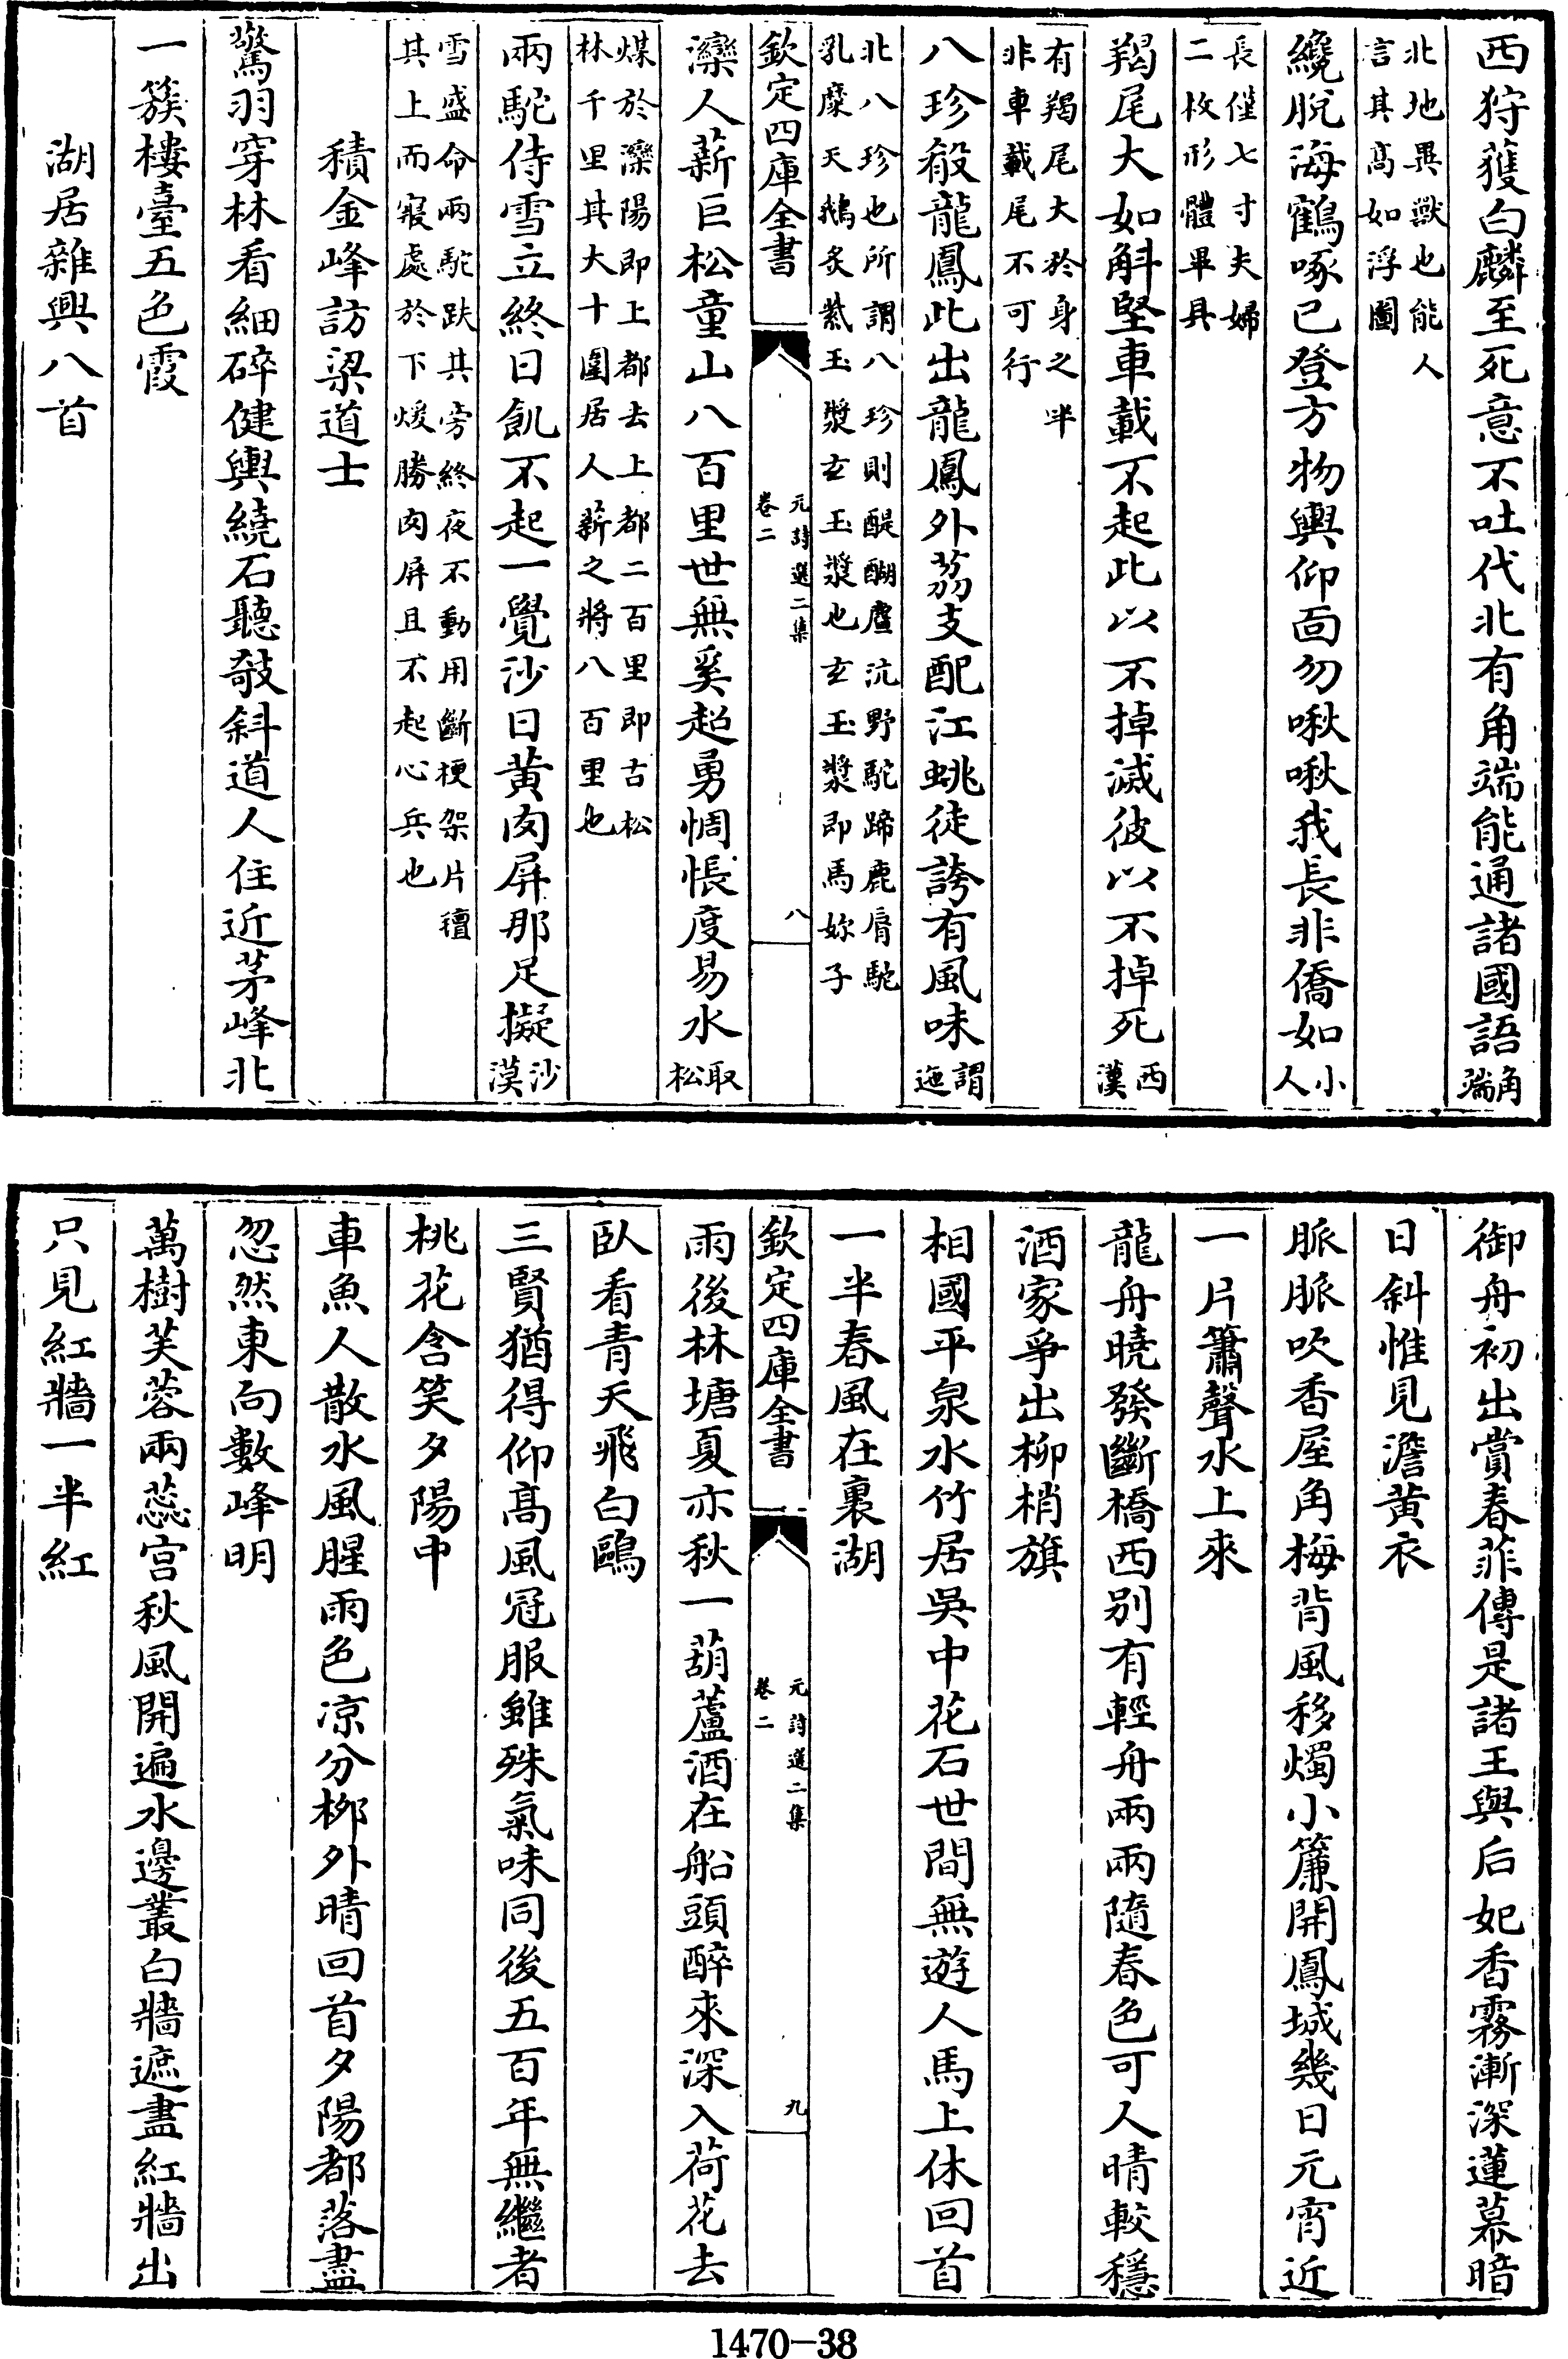 西狩獲白麟至死意不吐代北有角端能通諸國語角端
北地異獸也能人
言其高如浮圖
纔脫海鶴啄已登方物輿仰面勿啾啾我長非僑如小人
長僅七寸夫婦
二枚形體畢具
羯尾大如斛堅車載不起此以不掉滅彼以不掉死西漢
有羯尾大於身之半
非車載尾不可行
八珍殽龍鳳此出龍鳳外荔支配江姚徒誇有風味謂迤
北八珍也所謂八珍則醍醐麆沆野駝蹄鹿脣駝
乳糜天鵝炙紫玉漿玄玉漿也玄玉漿即馬妳子
欽定四庫全書
元詩選二集
卷二
八
灤人薪巨松童山八百里世無奚超勇惆悵度易水取松
煤於灤陽即上都去上都二百里即古松
林千里其大十圍居人薪之將八百里也
兩駝侍雪立終日飢不起一覺沙日黃肉屏那足擬沙漠
雪盛命兩駝趺其旁終夜不動用斷梗架片氊
其上而寢處於下煖勝肉屏且不起心兵也
積金峰訪梁道士
驚羽穿林看細碎健輿繞石聽攲斜道人住近茅峰北
一簇樓臺五色霞
湖居雜興八首
御舟初出賞春菲傳是諸王與后妃香霧漸深蓮幕暗
日斜惟見澹黃衣
脈脈吹香屋角梅背風移燭小簾開鳳城幾日元宵近
一片簫聲水上來
龍舟曉發斷橋西別有輕舟兩兩隨春色可人晴較穩
酒家爭出柳梢旗
相國平泉水竹居吳中花石世間無遊人馬上休回首
一半春風在裏湖
欽定四庫全書
元詩選二集
卷二
九
雨後林塘夏亦秋一葫蘆酒在船頭醉來深入荷花去
臥看青天飛白鷗
三賢猶得仰高風冠服雖殊氣味同後五百年無繼者
桃花含笑夕陽中
車魚人散水風腥雨色凉分柳外晴回首夕陽都落盡
忽然東向數峰明
萬樹芙蓉兩蕊宮秋風開遍水邊叢白牆遮盡紅牆出
只見紅牆一半紅
1470-38